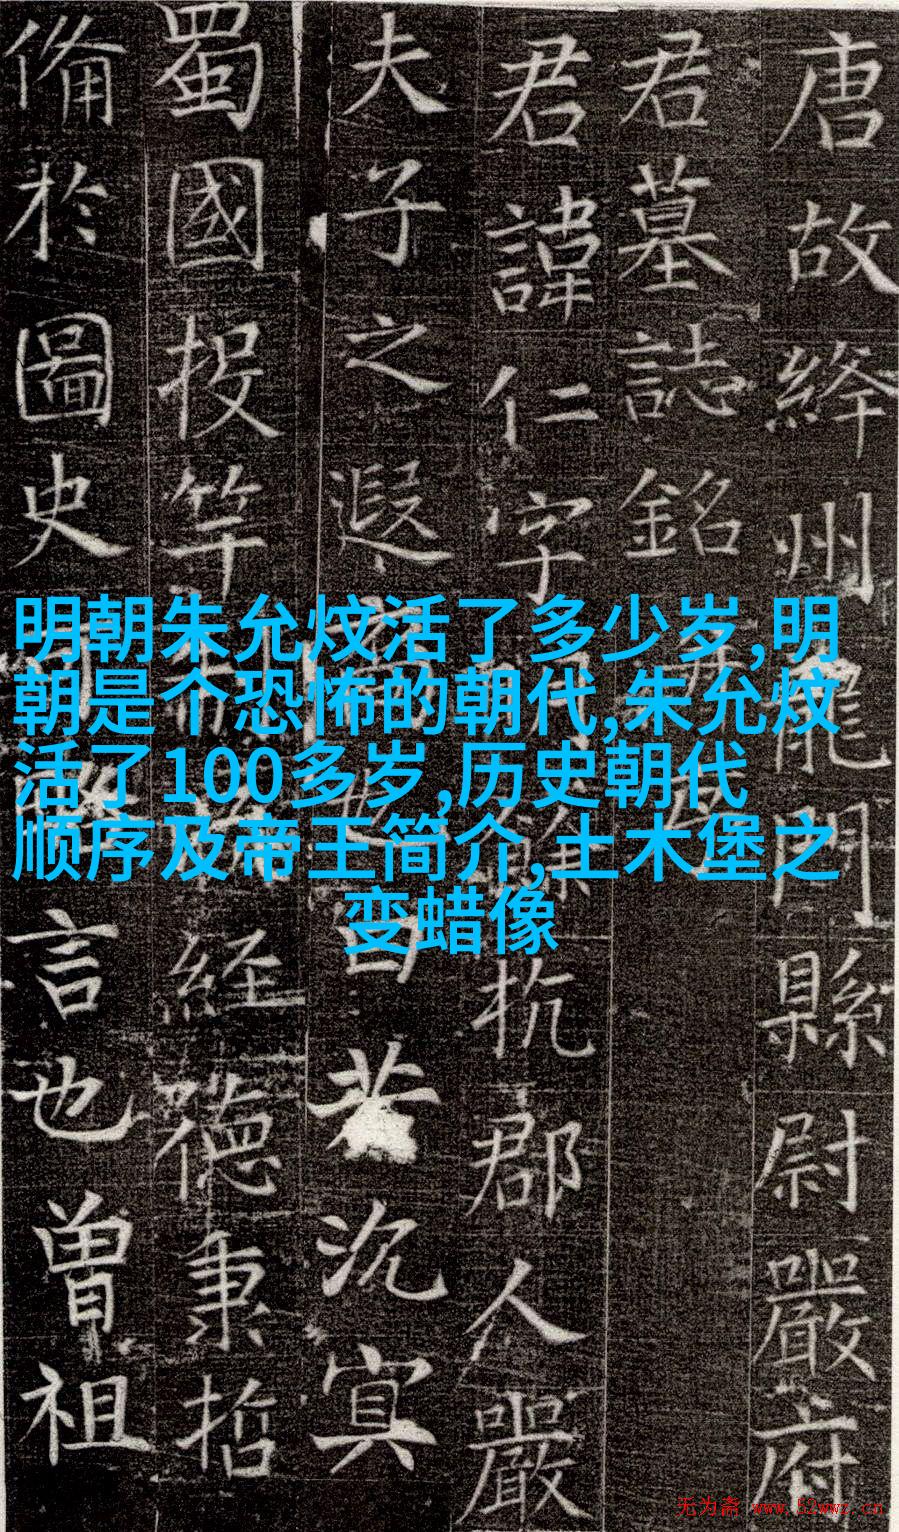 唐故絳州龍門縣尉嚴府
君墓誌銘
君諱仁字餘杭郡人嚴
夫子之遐若沉冥
蜀國投竿經德秉哲
備於圖史言也曾祖
明朝朱允炆活了多少岁,明
朝是个恐怖的朝代,朱允炆
活了100多岁,历史朝代
顺序及帝王简介,土木堡之
变蜡像
无为斋 www.52wwz.cn